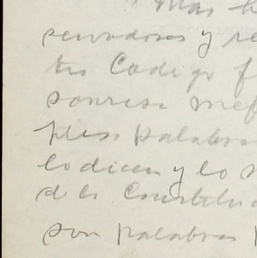 Mas h
senadores y re
tro Codigo f
sonrisa mef
ples palabras
lo dicen y lo s
de la Constitu
son palabras p